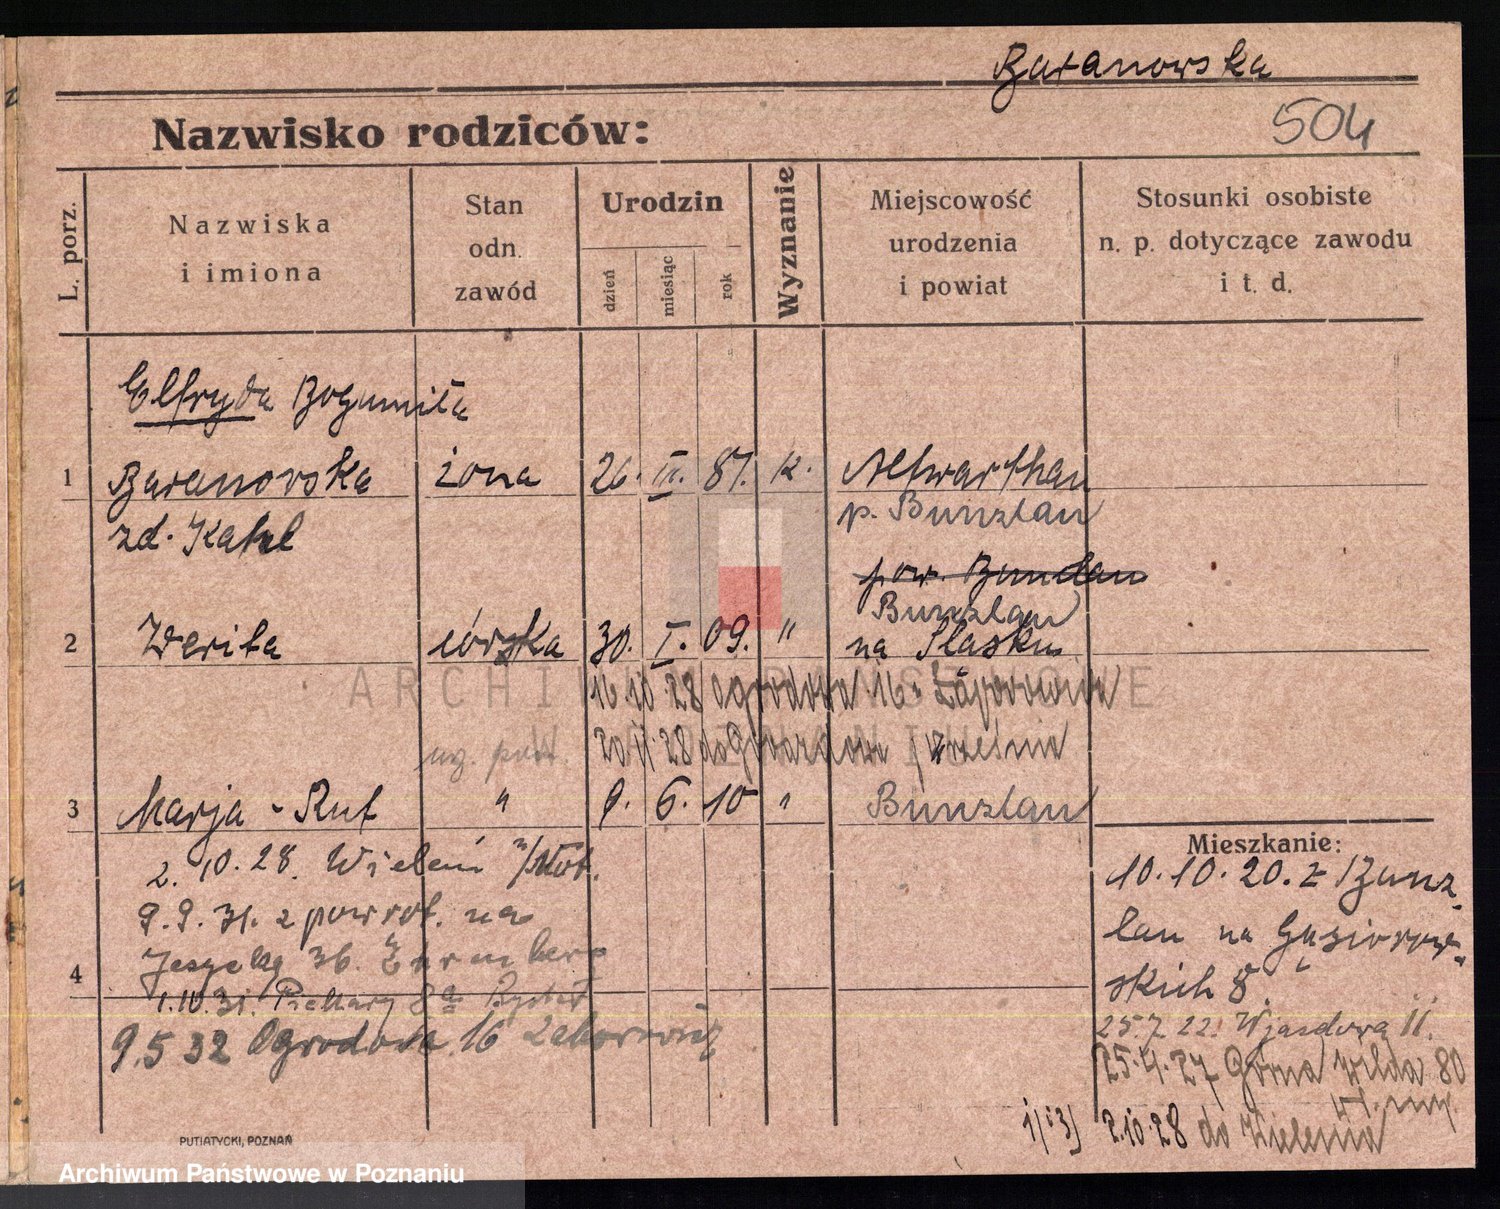 Baranowska
504
Nazwisko rodziców:
L. porz.
Nazwiska
i imiona
Stan
odn.
zawód
Urodzin
dzień
miesiąc
rok
Wyznanie
Miejscowość
urodzenia
i powiat
Stosunki osobiste
n. p. dotyczące zawodu
i t. d.
Elfryda Bogumiła
1 Baranowska żona 26. 87. k. Altwarthau
zd. p. Bunzlau
pow. Bunzlau
Bunzlau
2 córka 30. I. 09. " na Śląsku
16.10.28 Ogrodowa 16
20.11.28 do
3 Marja - Rut " 9. 6. 10 " Bunzlau
Mieszkanie:
2. 10. 28. Wieleń n/Not.
9. 9. 31. z powrot. na
36.
4
1.10.31. Piekary 8a
9.5 32 Ogrodowa 16
10.10.20. z Bunz-
lau na Gąsiorow-
skich 8.
25.7.22. Wjazdowa 11.
25.4.27 Górna Wilda 80
1/i3/ 2.10.28 do Wielenia
PUTIATYCKI, POZNAŃ
ARCHIWUM PAŃSTWOWE
W POZNANIU
Archiwum Państwowe w Poznaniu